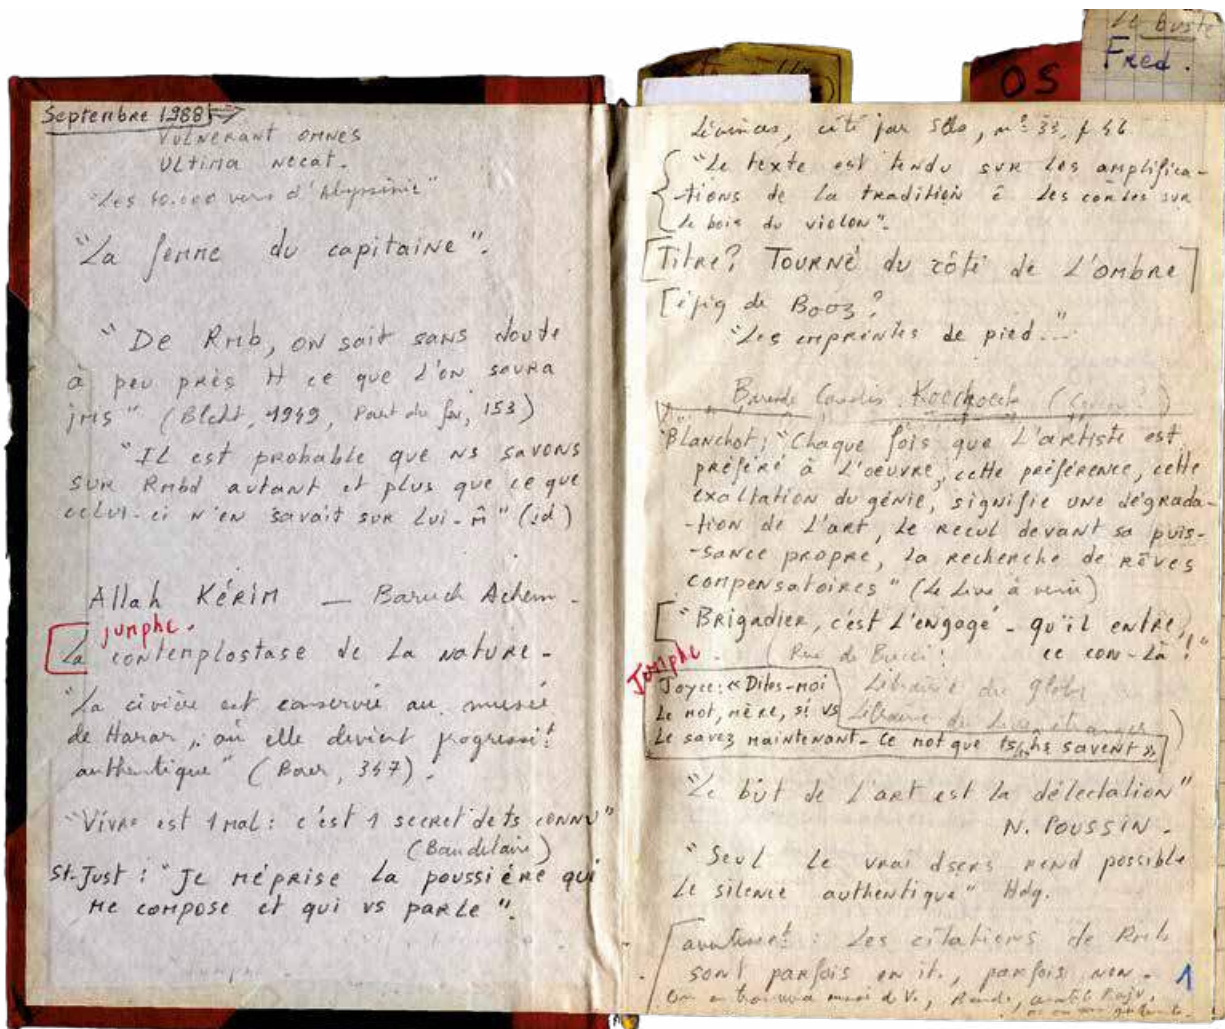 Septembre 1988
VULNERANT OMNES
ULTIMA NECAT.
"Les 10.000 vers d'Abyssinie"
"La femme du capitaine".
"De Rmb, on sait sans doute
à peu près tt ce que l'on saura
jms" (Blcht, 1949, Part du feu, 153)
"IL est probable que ns savons
sur Rmbd autant et plus que ce que
celui-ci n'en savait sur lui-m̂" (id)
Allah KÉRIM — Baruch Achem -
jumphe.
La contemplostase de La nature -
"La civière est conservée au musée
de Harar, où elle devient progressit
authentique" (Borer, 347).
"Vivre est 1 mal : c'est 1 secret de ts connu"
(Baudelaire)
St-Just : "Je méprise La poussière qui
me compose et qui vs parle".
Le buste
Fred.
OS
Lévinas, cité par n° 33, p 46
"Le texte est tendu sur les amplifica-
-tions de la tradition ĉ les cordes sur
le bois du violon".
[Titre? TOURNÉ du côté de L'ombre]
[épig de Booz ?
"Les empreintes de pied..."
Blanchot : "Chaque fois que L'artiste est
préféré à L'oeuvre, cette préférence, cette
exaltation du génie, signifie une dégrada-
-tion de L'art, Le recul devant sa puis-
-sance propre, La recherche de rêves
compensatoires" (Le Livre à venir)
["Brigadier, c'est L'engagé - qu'il entre,
ce con-là !"
Jumphe
(Rue de Bucci :
Librairie du globe
Joyce : « Dites-moi
Le mot, mère, si vs
Le savez maintenant - Ce mot que ts savent »
"Le bût de L'art est la délectation"
N. POUSSIN -
"Seul Le vrai dscrs rend possible
Le silence authentique" Hdg.
[avertissmt : Les citations de Rmb
sont parfois en it., parfois non -
1